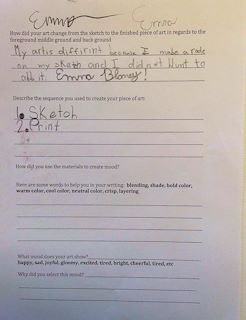 Emma Emma
How did your art change from the sketch to the finished piece of art in regards to the
foreground middle ground and back ground
My art is diffirint because I made a rode
on my sketh and I did not Wunt to
add it. Emma Blomey!
Describe the sequence you used to create your piece of art:
1. SKetch
2. Print
3.
How did you use the materials to create mood?
Here are some words to help you in your writing: blending, shade, bold color,
warm color, cool color, neutral color, crisp, layering
What mood does your art show?
happy, sad, joyful, gloomy, excited, tired, bright, cheerful, tired, etc
Why did you select this mood?